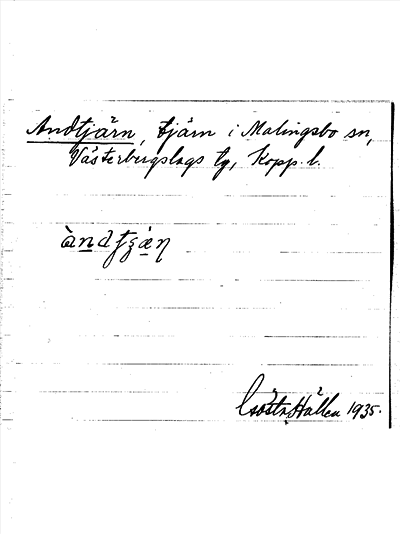 Andtjärn, tjärn i Malingsbo sn,
Västerbergslags tg, Kopp. l.
Gösta Hållen 1935.